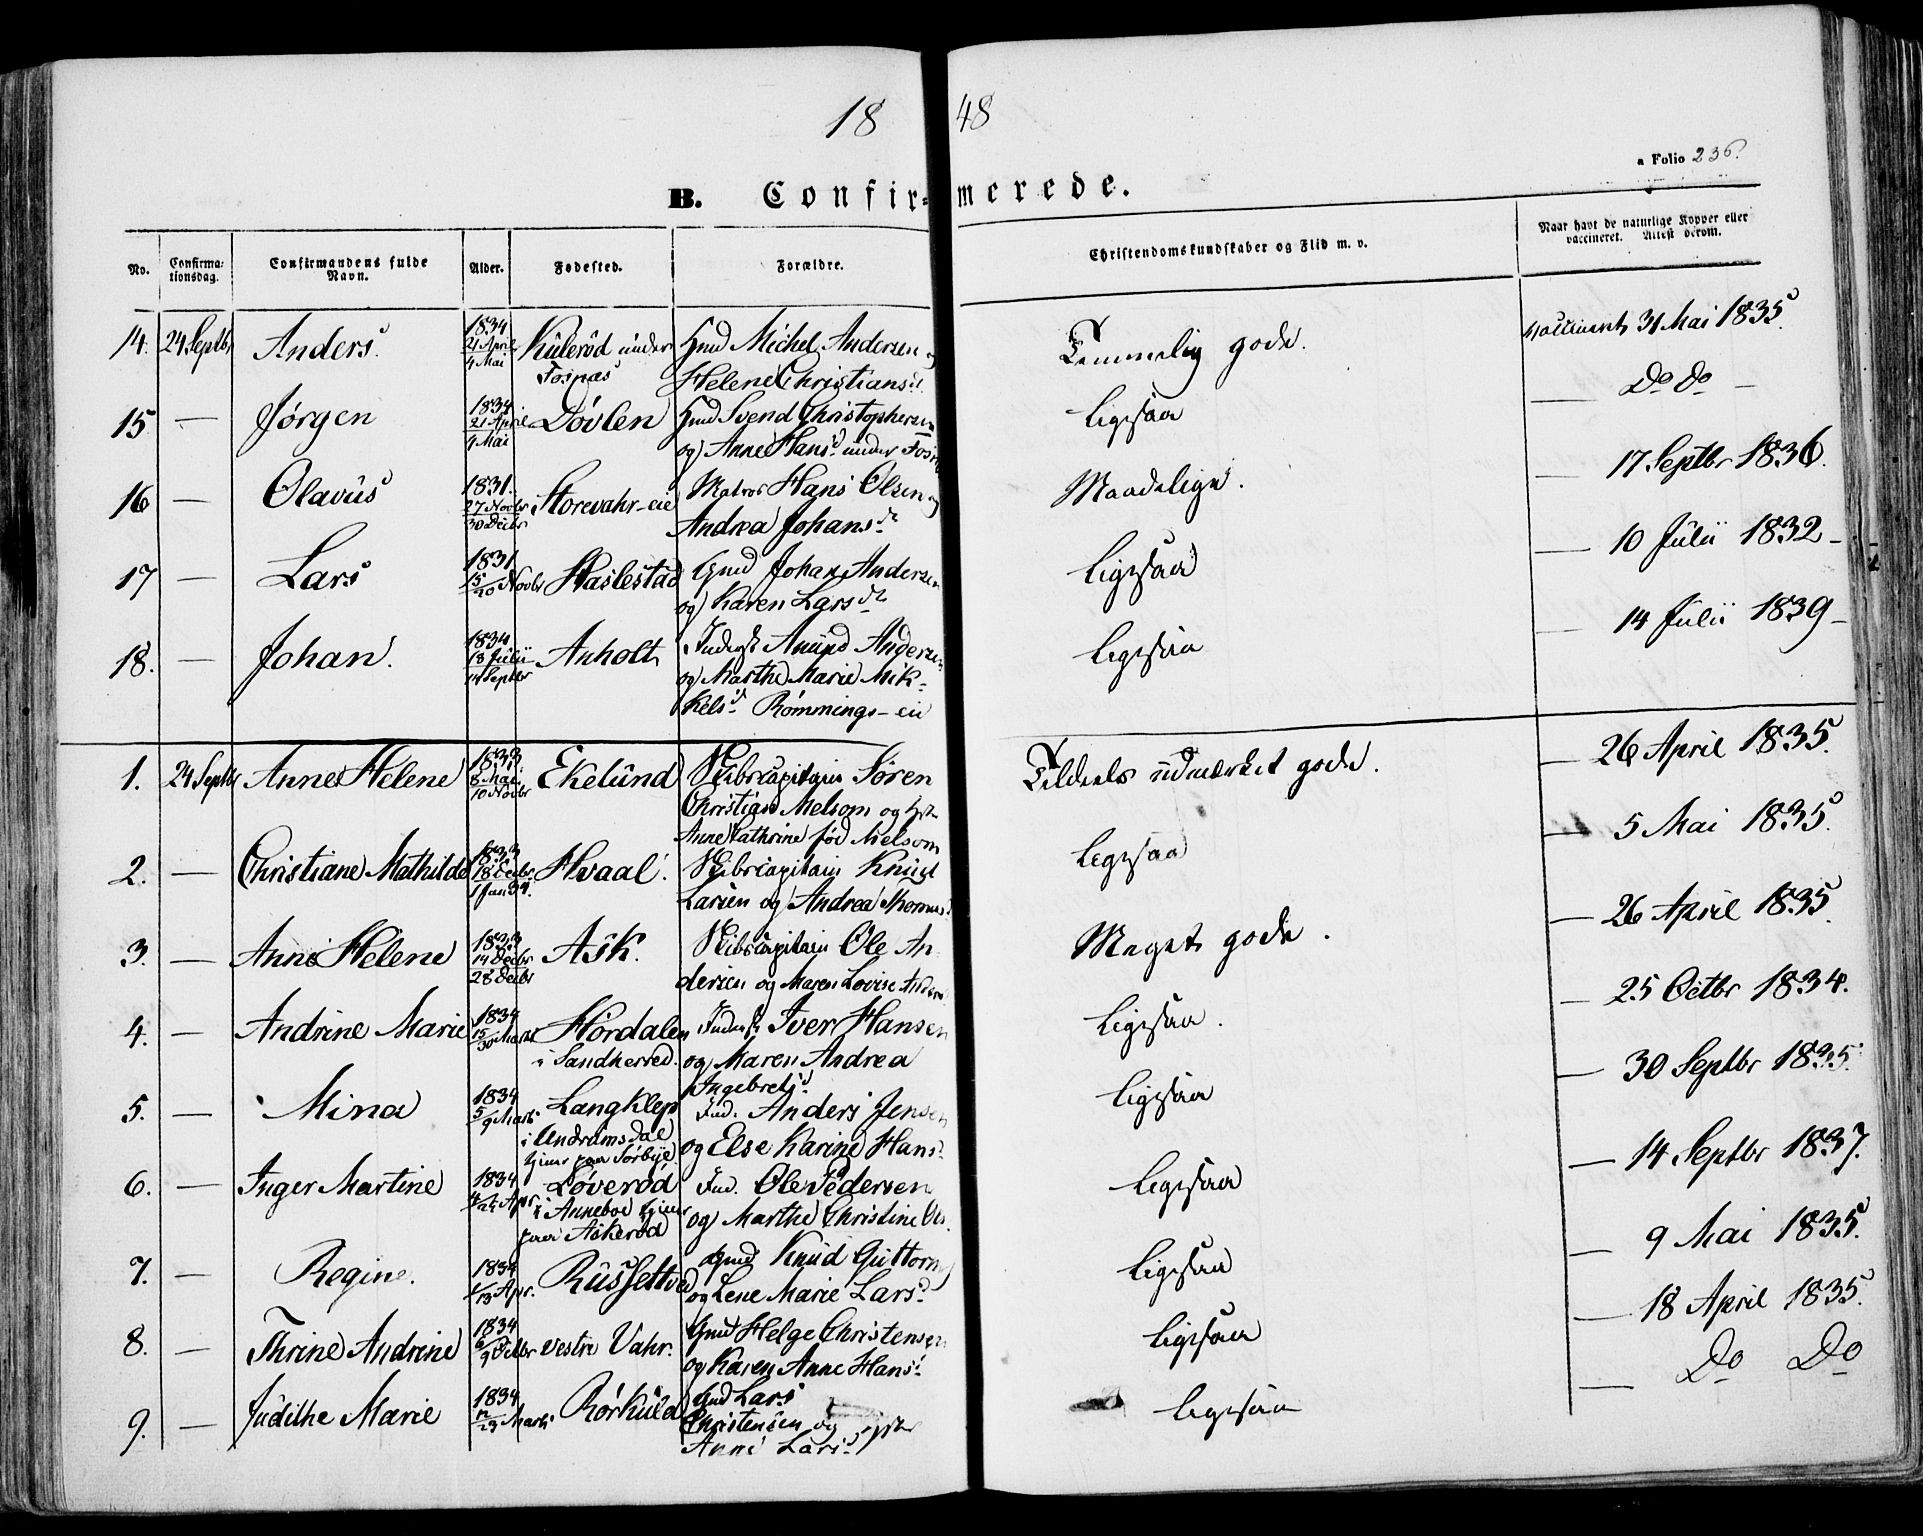 18 48
a Folio 236.
B. Confir= merede.
No. Confirma=tionsdag. Confirmandens fulde Navn. Alder. Fødested. Forældre. Christendomskundskaber og Flid m. v. Naar havt de naturlige Kopper eller vaccineret. Attest derom.
14. 24 Septbr Anders. 1834 21 April 4 Mai Külerød under Fosnæs Gmd Michel Andersen og Helene Christiansd. Temmelig gode. vaccineret 31 Mai 1835.
15 — Jørgen 1834 21 April 4 Mai Døvlen Gmd Svend Christophersen og Anne Hansd. under Fosnæs ligesaa — Do Do —
16 — Olavüs 1831. 27 Novbr 30 Decbr Storevahr-eie Matros Hans Olsen og Andrea Johansdr. Maadelige. — 17 Septbr 1836.
17 — Lars 1831 15/20 Novbr Haslestad Gmd Johan Andersen og Karen Larsdr ligesaa — 10 Julii 1832 —
18. — Johan. 1834 13 Julii 14 Septbr Anholt Inderst Anund Andersen og Marthe Marie Mikkelsd. Rømmings-eie ligesaa — 14 Julii 1839 —
1. 24 Septbr Anne Helene 1833 8 Mai 10 Novbr Ekelund Skibscapitain Søren Christian Melsom og Hstr Anne Cathrine fød Melsom Tildeels udmærket gode. — 26 April 1835.
2. — Christiane Mathilde 1833 18 Decbr 1 Jan 34. Hvaal. Skibscapitain Knud Larsen og Andrea Thomasd ligesaa — 5 Mai 1835.
3. — Anne Helene 1833 14 Decbr 28 Decbr Ask. Skibscapitain Ole Andersen og Maren Lovise Meget gode. — 26 April 1835.
4. — Andrine Marie 1834 15/30 Marts Hørdalen i Sandherred. Inderst Iver Hansen og Maren Andrea Ingebretsd. ligesaa. — 25 Octbr 1834.
5. — Mina 1834 5/9 Marts Langklep i Andramsdal tjener paa Sørbye Ind. Anders Jensen og Else Karine Hansd. ligesaa — 30 Septbr 1835.
6. — Inger Martine 1834 Apr. Løverød i Anneboe tjener paa Askerød Ind. Ole Pedersen og Marthe Christine Ols. ligesaa — 14 Septbr 1837.
7. — Regine. 1834 /13 Apr. Russeltved Gmd Knud Guttorms og Lene Marie Larsd. ligesaa — 9 Mai 1835.
8. — Thrine Andrine 1834 6/9 Octbr vestre Vahr. Gmd Helge Christensen og Karen Anne Hansd. ligesaa — 18 April 1835.
9. — Judithe Marie 1834 /23 Marts Rørkuld Gmd Lars Christensen og Hstr Anne Larsd. ligesaa — Do Do